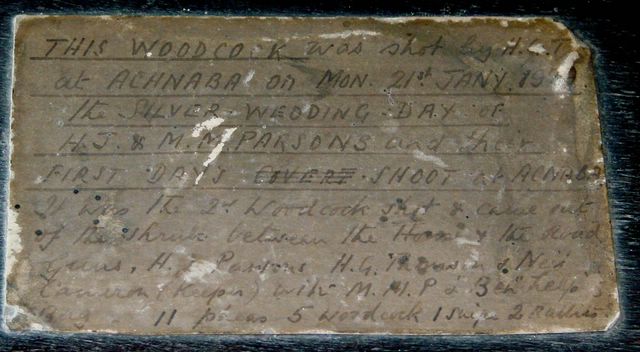 THIS WOODCOCK was shot by H.G.T.
at ACHNABA on MON. 21st JANY.
the SILVER WEDDING DAY OF
H.J. & M.M. PARSONS and their
FIRST DAYS COVERT SHOOT at ACHNABA
It was the 2nd Woodcock shot & came out
of the shrubs between the House & the Road
Guns, H.J. Parsons H.G.
Cameron (Keeper) with M.M.P &
11 5 Woodcock 1 Snipe 2 Rabbits